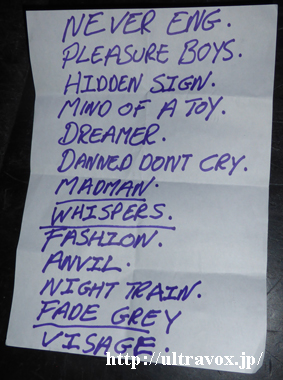 NEVER ENG.
PLEASURE BOYS.
HIDDEN SIGN.
MIND OF A TOY.
DREAMER.
DANNED DONT CRY.
MADMAN.
WHISPERS.
FASHION.
ANVIL.
NIGHT TRAIN.
FADE GREY
VISAGE.
http://ultravox.jp/